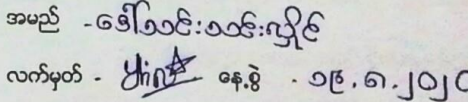 အမည် - ဒေါ်သင်းသင်းလှိုင်
လက်မှတ် - နေ့စွဲ - ၁၉.၈.၂၀၂၀